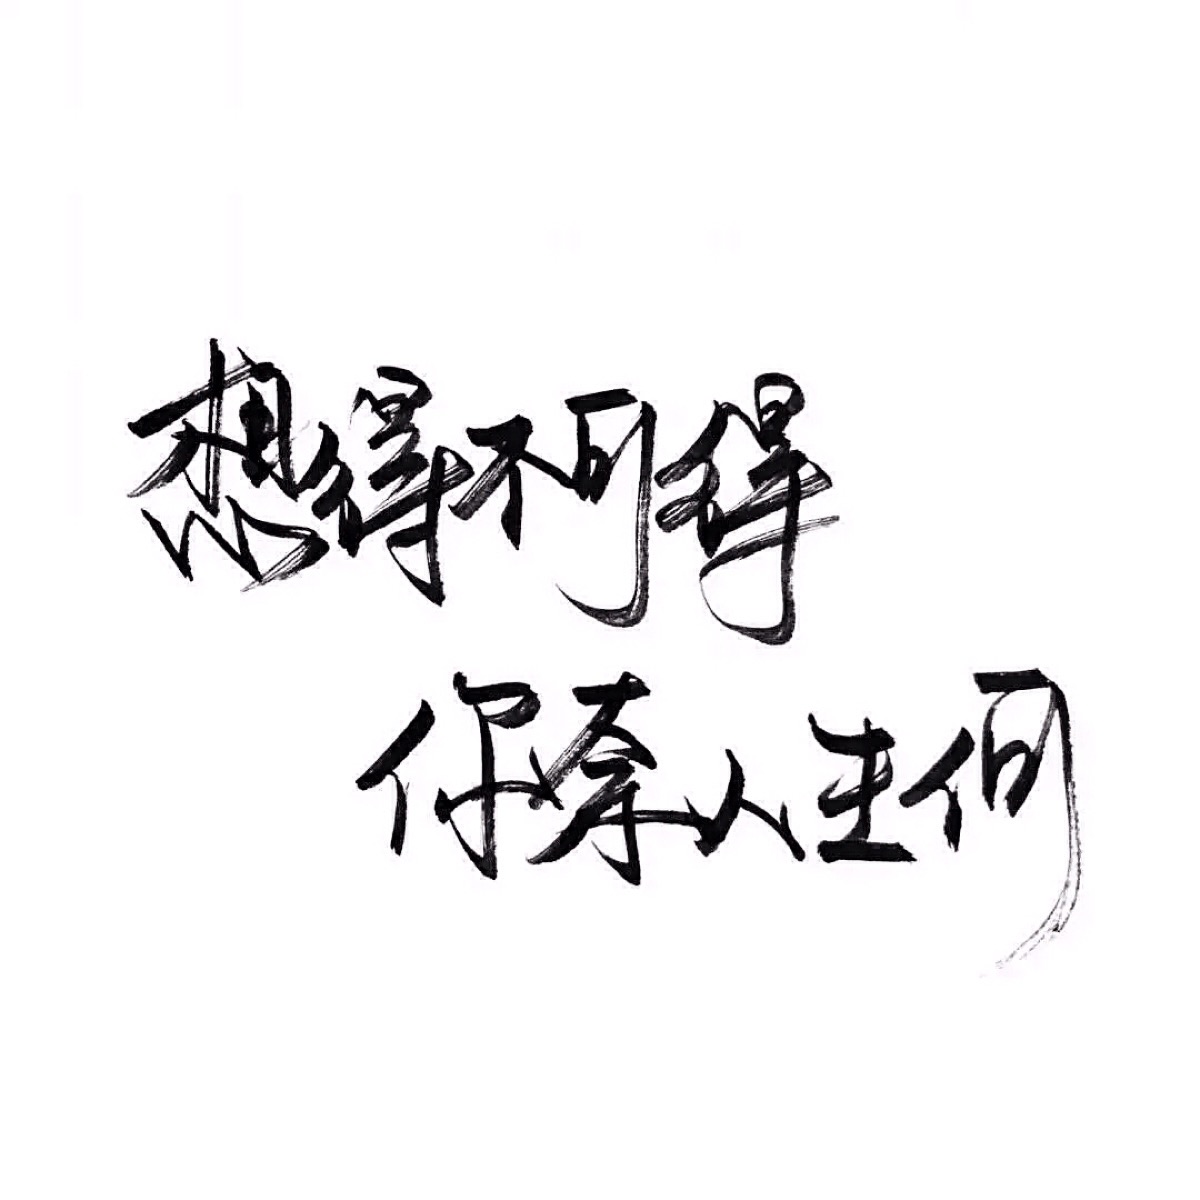 想得不可得
你奈人生何